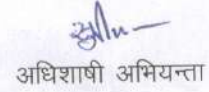 अधिशाषी अभियन्ता